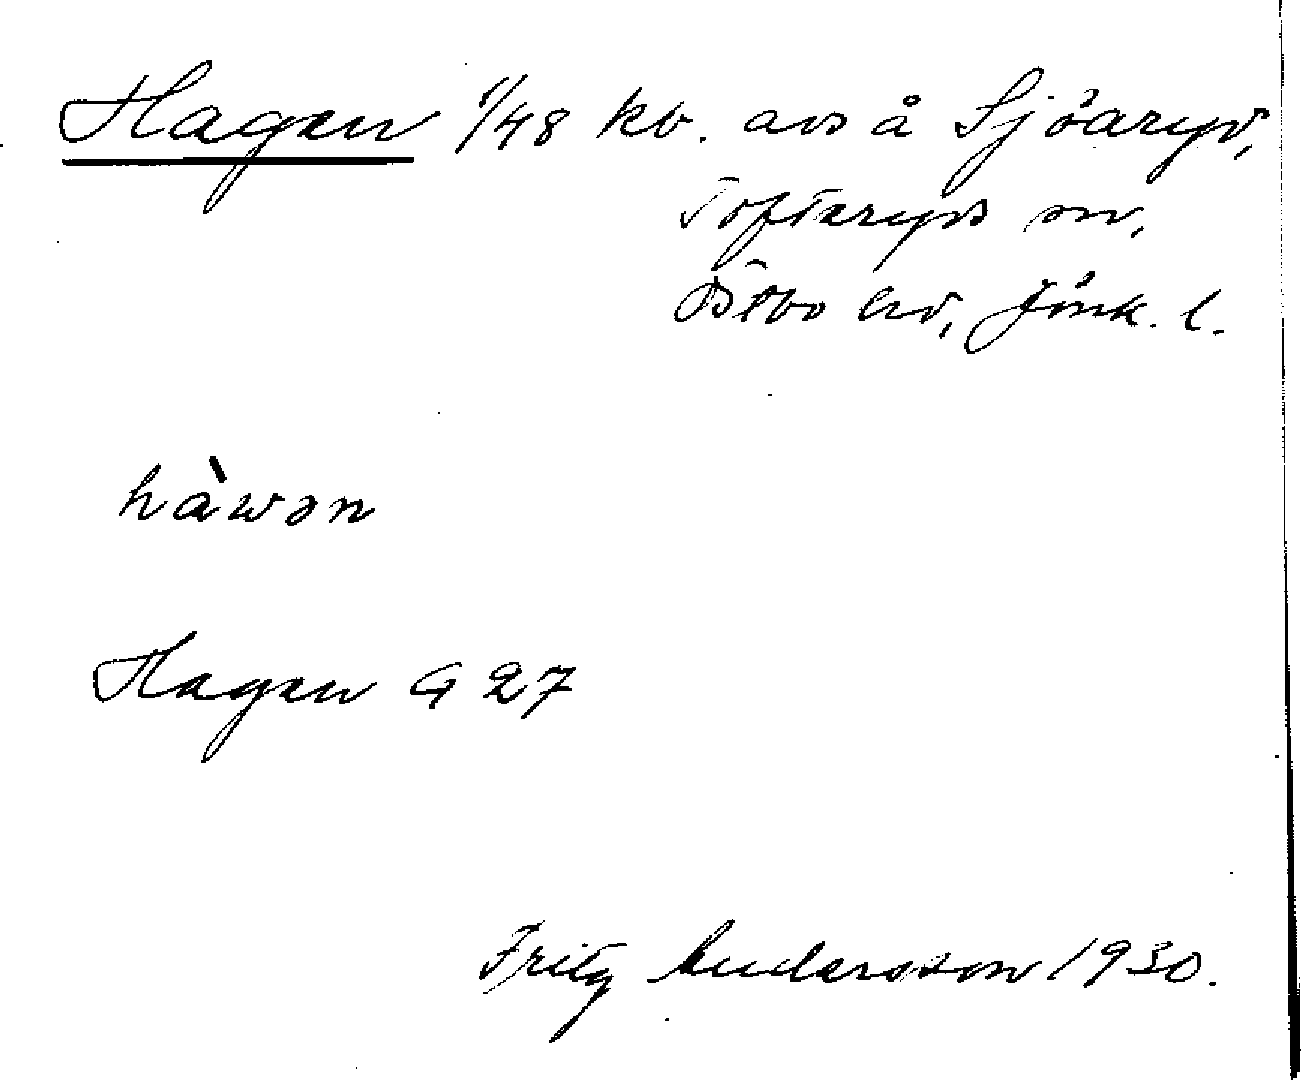 Hagen 1/48 kb. avs å Sjöaryd,
Toftaryds sn,
Östbo hd, Jönk. l.
hàwən
Hagen G 27
Fritz Andersson 1930.